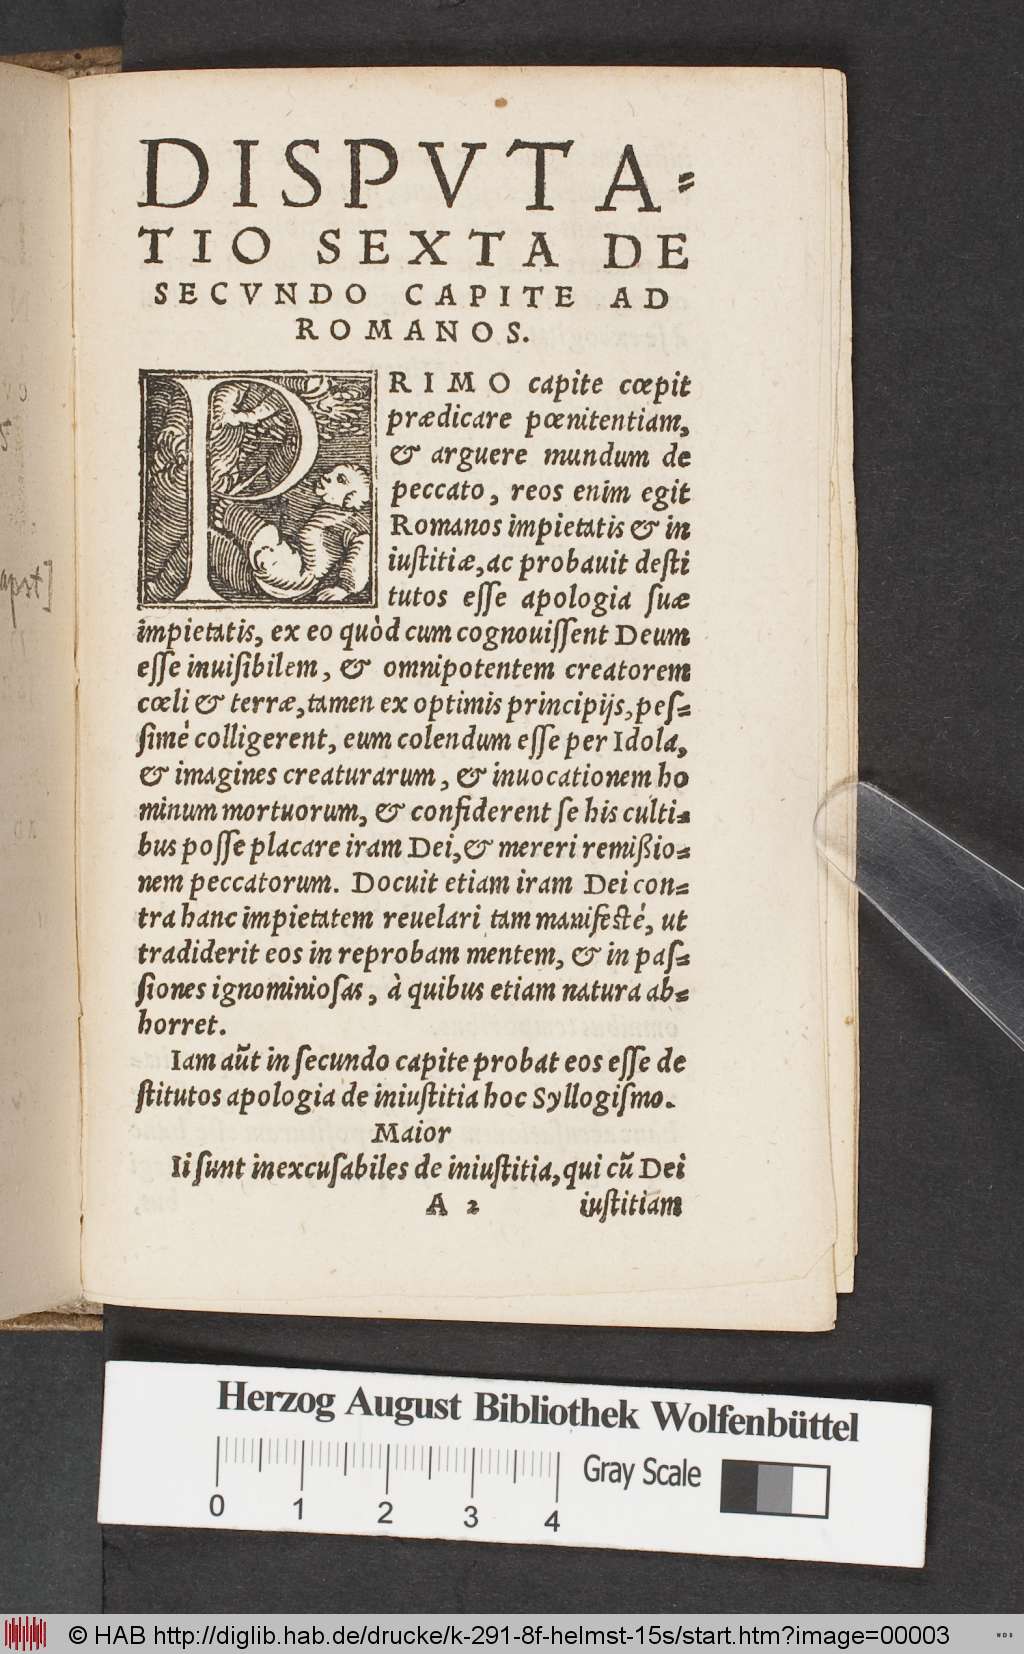 DISPVTA⸗
TIO SEXTA DE
SECVNDO CAPITE AD
ROMANOS.
PRIMO capite cœpit
prædicare pœnitentiam,
& arguere mundum de
peccato, reos enim egit
Romanos impietatis & in
iuſtitiæ, ac probauit deſti
tutos eſſe apologia ſuæ
impietatis, ex eo quòd cum cognouiſſent Deum
eſſe inuiſibilem, & omnipotentem creatorem
cœli & terræ, tamen ex optimis principijs, peſ⸗
ſimè colligerent, eum colendum eſſe per Idola,
& imagines creaturarum, & inuocationem ho
minum mortuorum, & confiderent ſe his culti⸗
bus poſſe placare iram Dei, & mereri remißio⸗
nem peccatorum. Docuit etiam iram Dei con⸗
tra hanc impietatem reuelari tam manifeſtè, ut
tradiderit eos in reprobam mentem, & in paſ⸗
ſiones ignominioſas, à quibus etiam natura ab⸗
horret.
Iam aũt in ſecundo capite probat eos eſſe de
ſtitutos apologia de iniuſtitia hoc Syllogiſmo.
Maior
Ii ſunt inexcuſabiles de iniuſtitia, qui cũ Dei
A 2 iuſtitiam
Herzog August Bibliothek Wolfenbüttel
0 1 2 3 4
Gray Scale
© HAB http://diglib.hab.de/drucke/k-291-8f-helmst-15s/start.htm?image=00003